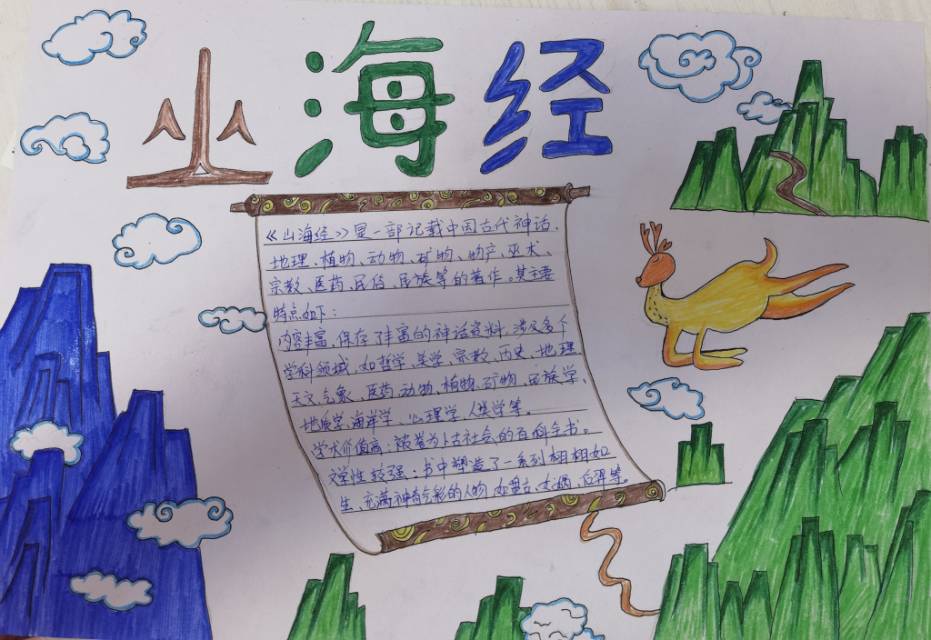 山海经
《山海经》是一部记载中国古代神话、
地理、植物、动物、矿物、物产、巫术、
宗教、医药、民俗、民族等的著作。其主要
特点如下：
内容丰富：保存了丰富的神话资料，涉及多个
学科领域，如哲学、美学、宗教、历史、地理、
天文、气象、医药、动物、植物、矿物、民族学、
地质学、海洋学、心理学、人类学等。
学术价值高：被誉为上古社会的百科全书。
文学性较强：书中塑造了一系列栩栩如
生、充满神奇色彩的人物，如盘古、女娲、后羿等。